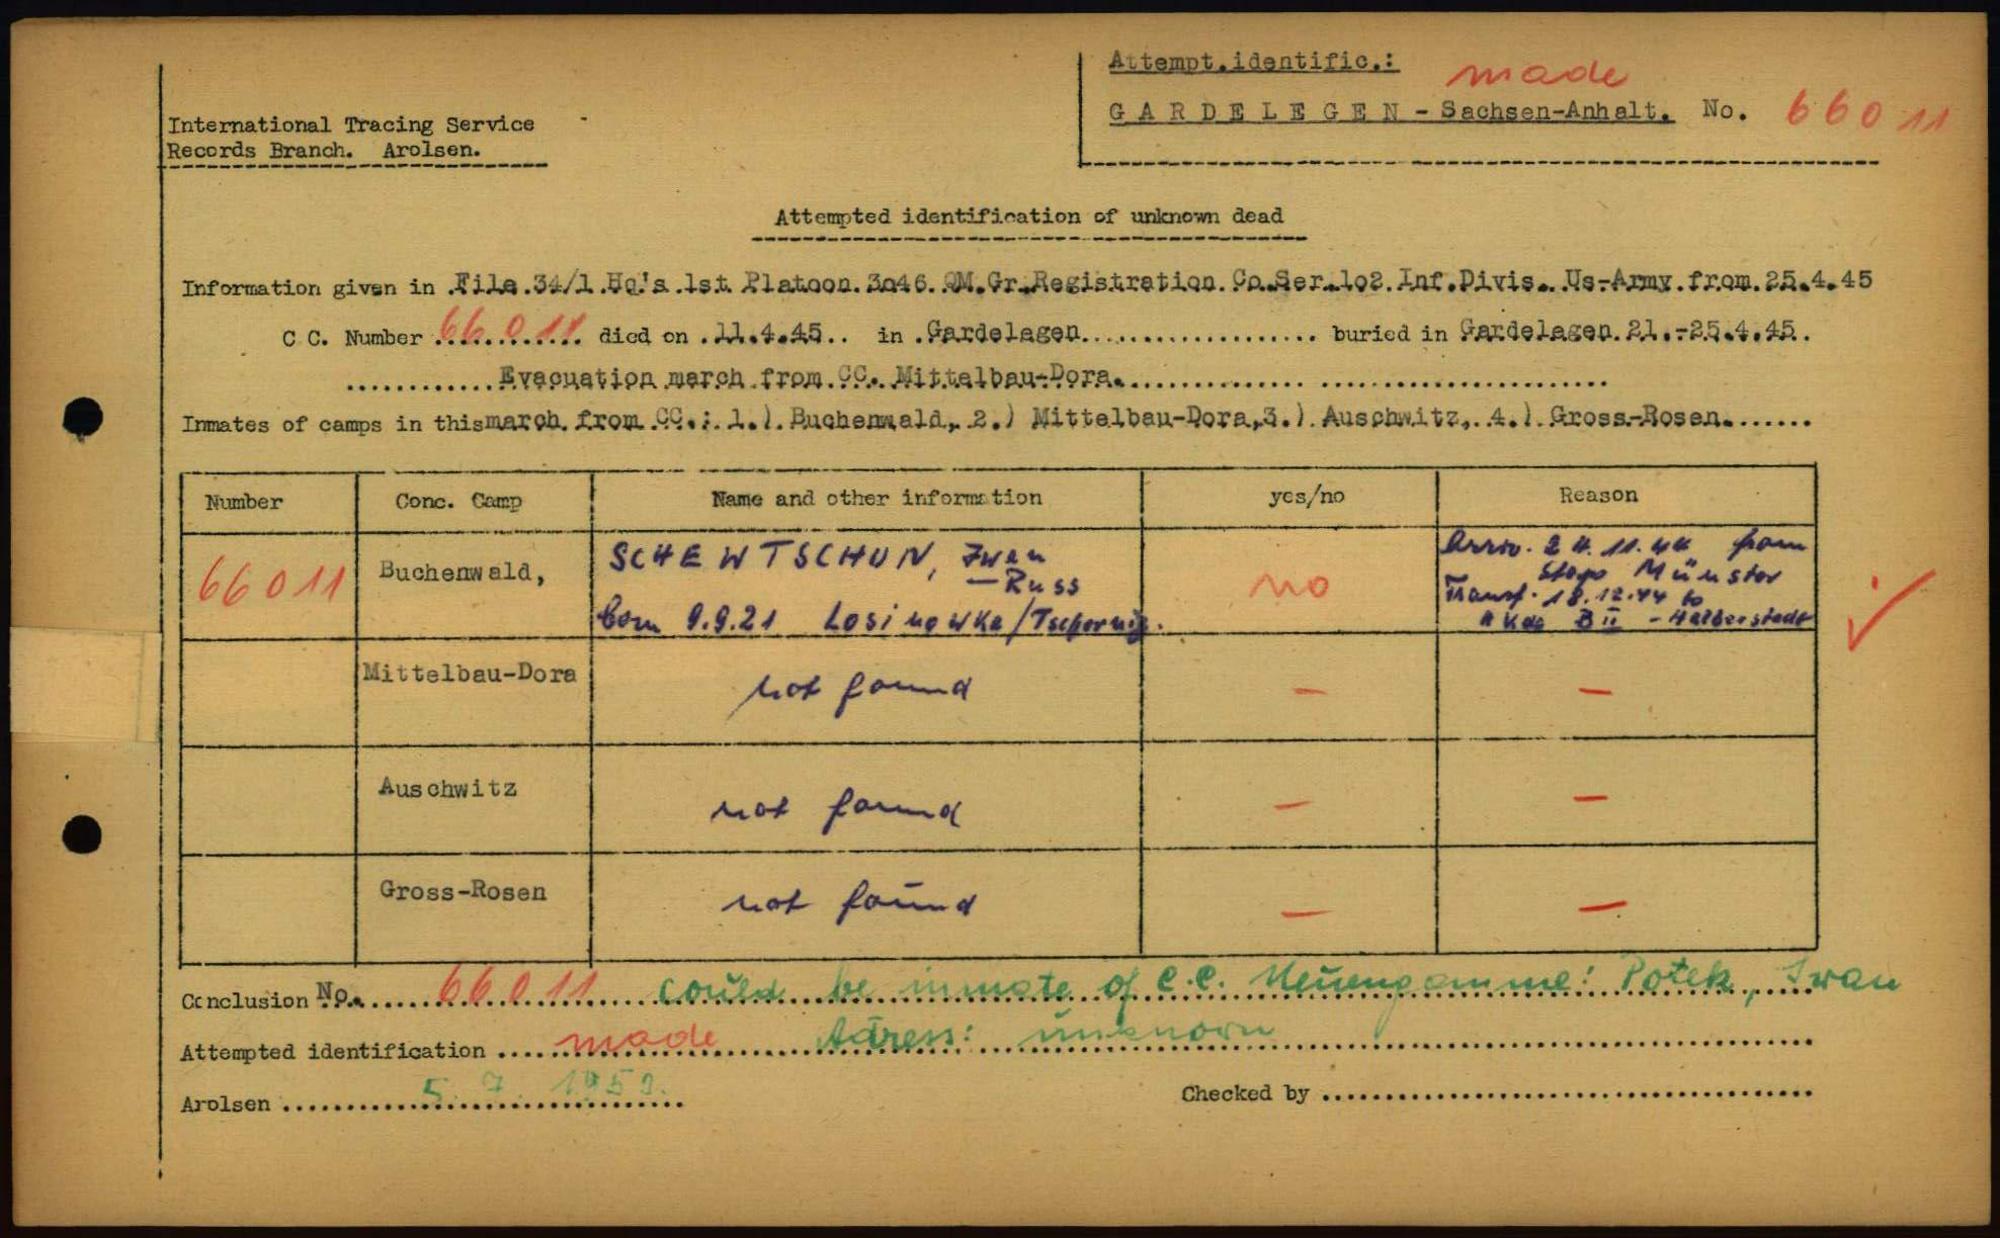 Attempt.identific.: made
GARDELEGEN - Sachsen-Anhalt. No. 66011
International Tracing Service
Records Branch. Arolsen.
Attempted identification of unknown dead
Information given in File.34/1.Hq's.1st Platoon.3o46.QM.Gr.Registration.Co.Ser.1o2.Inf.Divis..Us-Army.from.25.4.45
C C. Number 66011 died on .11.4.45.. in .Gardelagen. buried in Gardelagen.21.-25.4.45.
Evacuation march.from.CC. Mittelbau-Dora.
Inmates of camps in this march.from.CC.: 1.).Buchenwald,.2.) Mittelbau-Dora,3.).Auschwitz,.4.).Gross-Rosen.
Number Conc. Camp Name and other information yes/no Reason
66011 Buchenwald, SCHEWTSCHUN, Iwan no Arriv. 24.11.44 from
— Russ Stapo Münster
born 9.9.21 Losinowka/Tschernig. Transf. 18.12.44 to
Kdo BII - Halberstadt
Mittelbau-Dora not found — —
Auschwitz not found — —
Gross-Rosen not found — —
Conclusion No. 66011 could be inmate of C.C. Neuengamme: Potek, Iwan
Attempted identification made Adress: unknown
Arolsen 5. 7. 1950.
Checked by